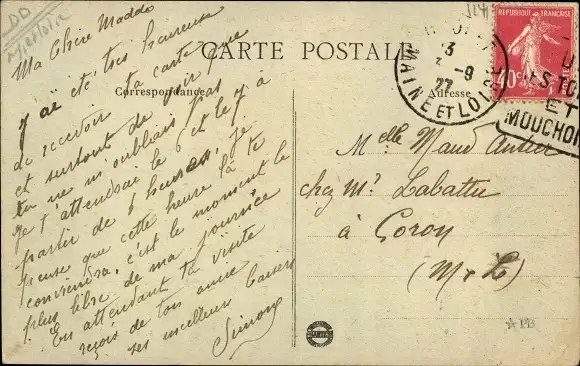 CARTE POSTALE
Correspondance
Adresse
Ma Chère Maddo
J'ai été très heureuse
de recevoir ta carte
et surtout de voir que
tu ne m'oubliais pas
Je t'attendrai le 6 et le 7 à
partir de 6 heures, je
pense que cette heure là te
conviendra, c'est le moment le
plus libre de ma journée
En attendant ta visite
reçois de ton amie
ses meilleurs baisers
Simone
MAINE ET LOIRE
3 -9
27
REPUBLIQUE FRANÇAISE
40c
ET
MOUCHOI
Melle Maud Antier
chez Mr Labattu
à Coron
(M & L)